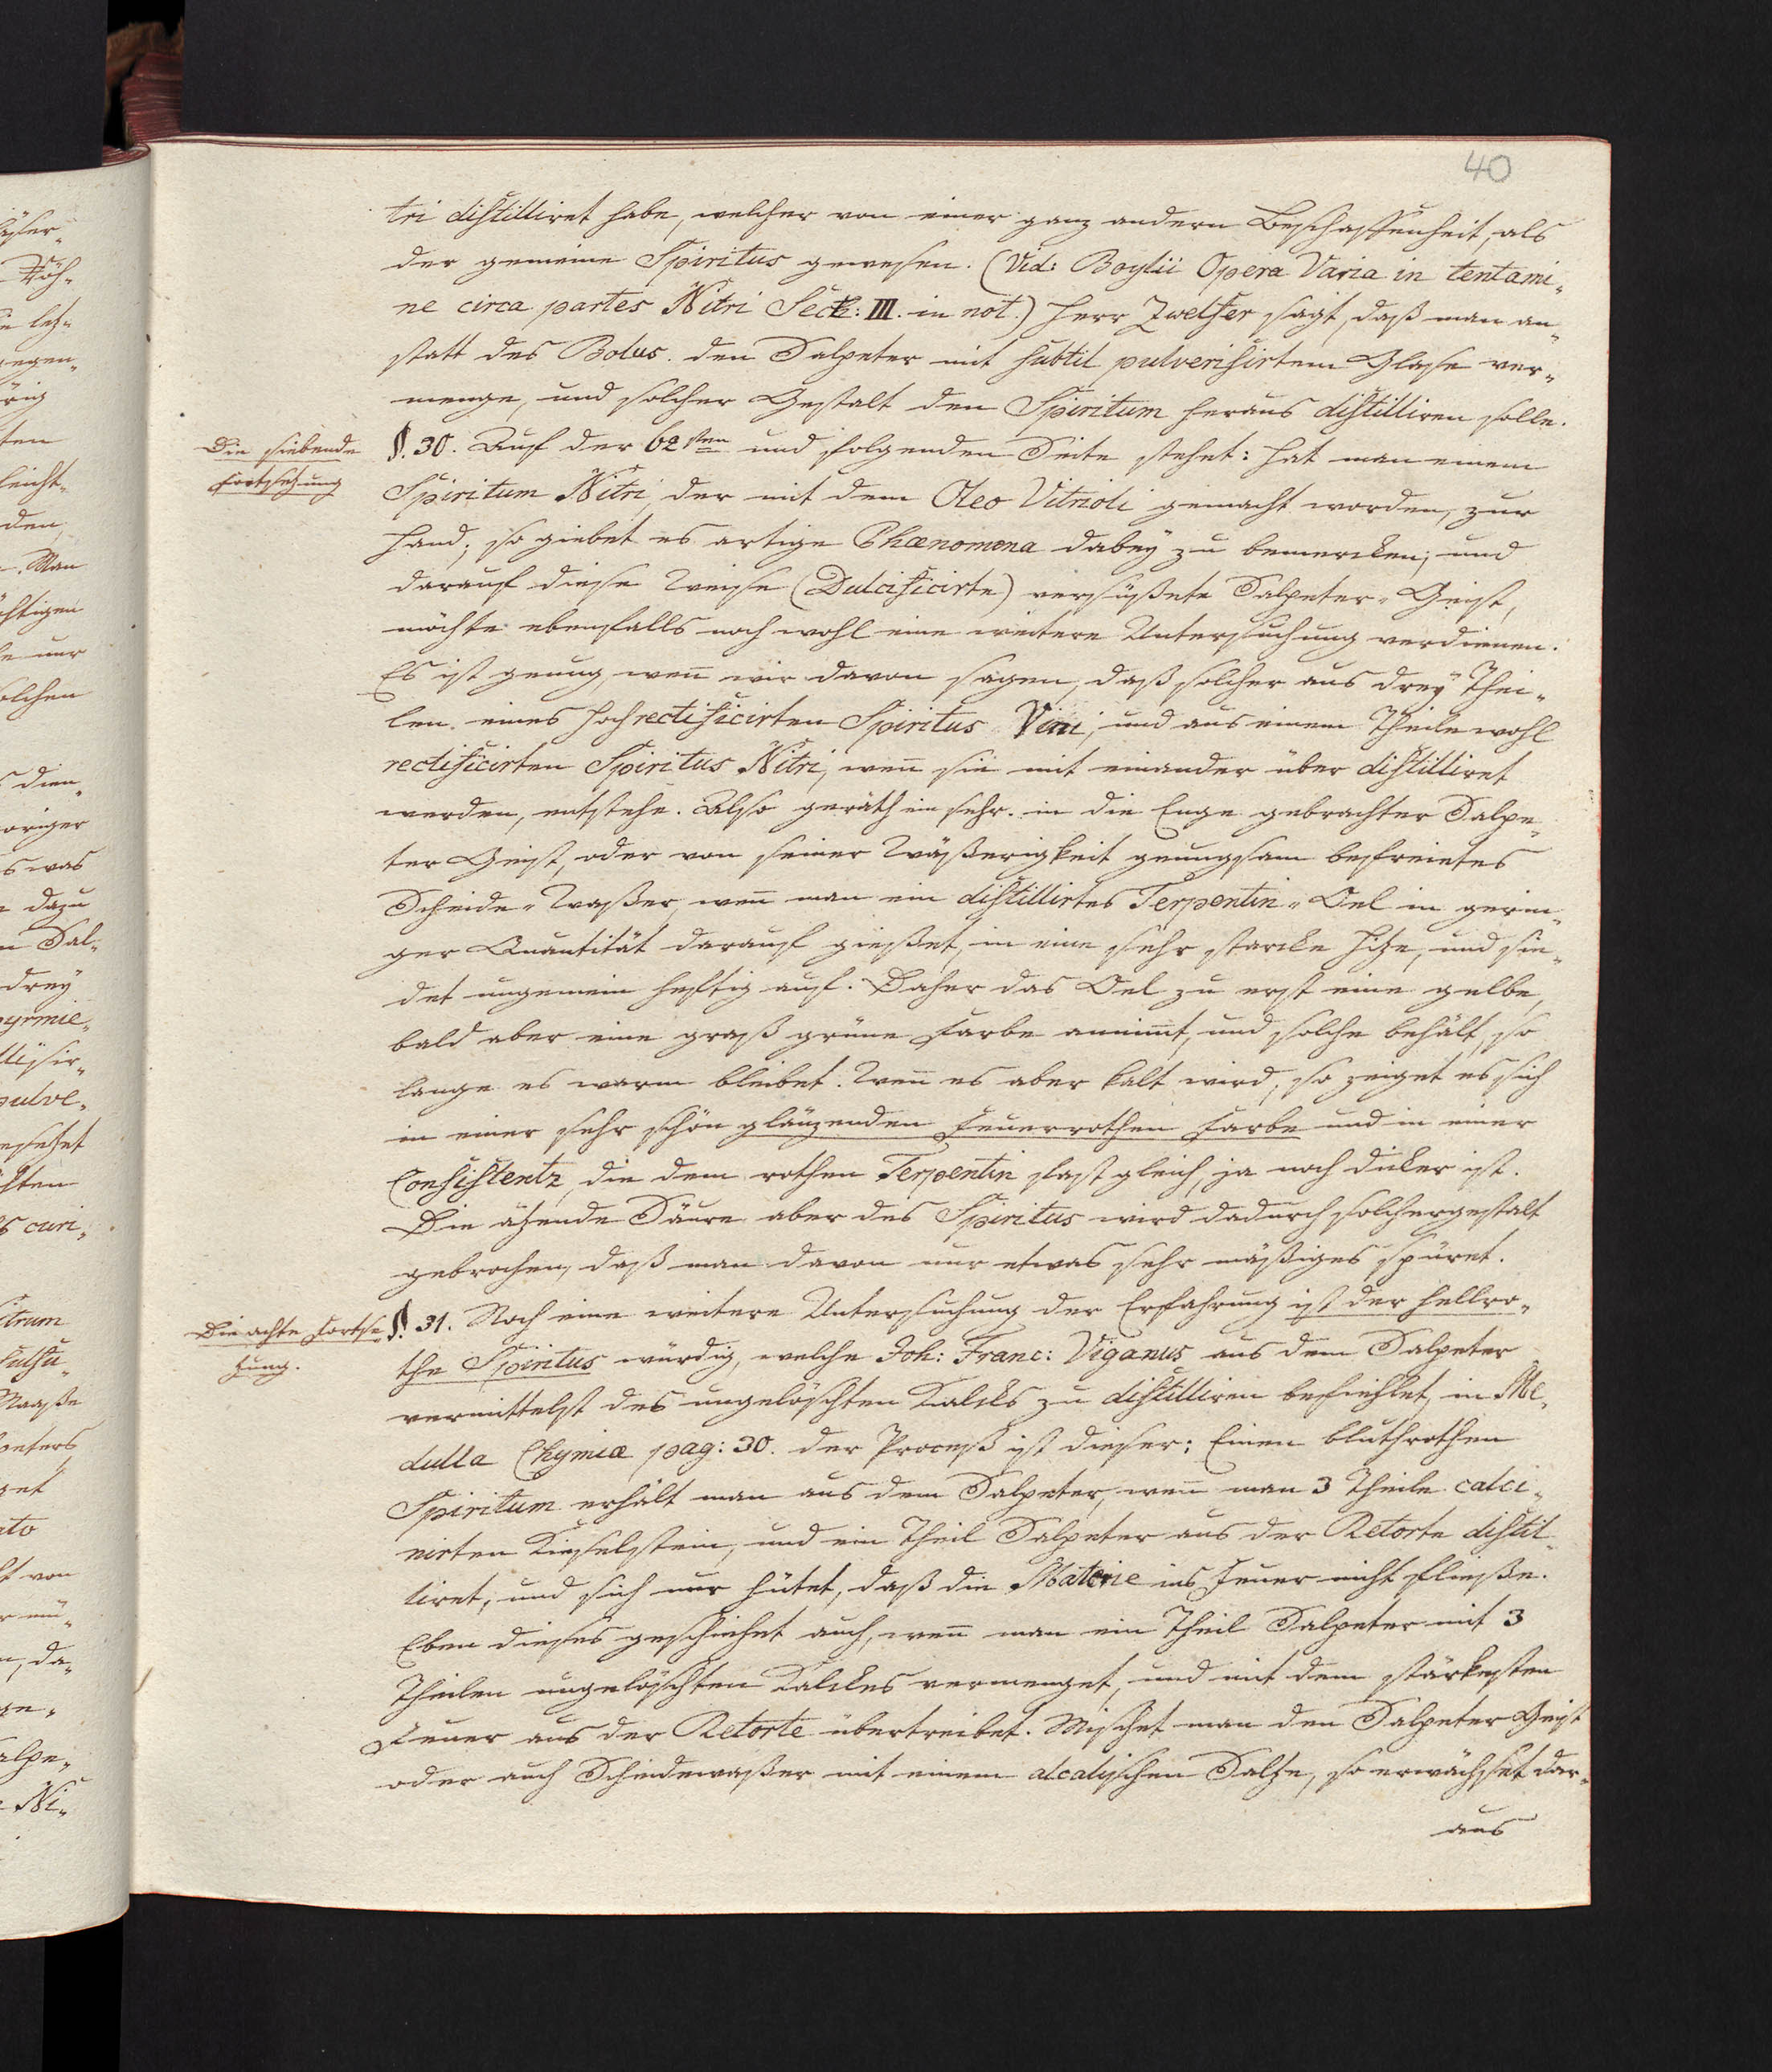 40
tri distilliret habe, welcher von einer ganz andern Beschaffenheit, als
der gemeine Spiritus gewesen. (Vid: Boylii Opera Varia in tentami„
ne circa partes Nitri Sect: III. in not.) Herr Zwelfer sagt, daß man an„
statt des Bolus den Salpeter mit subtil pulverisirtem Glase ver„
menge, und solcher Gestalt den Spiritum heraus distilliren solle.
Die siebende
Fortsetzung
§. 30. Auf der 62sten und folgenden Seite stehet: hat man einem
Spiritum Nitri, der mit dem Oleo Vitrioli gemacht worden, zur
Hand; so giebet es artige Phœnomena dabeÿ zu bemercken; und
darauf diese Weise (Dulcificirte) versüßete Salpeter„Geist,
möchte ebenfalls noch wohl eine weitere Untersuchung verdienen.
Es ist genug, weñ wir davon sagen, daß solcher aus dreÿ Thei„
len eines hochrectificirten Spiritus Vini, und aus einem Theile wohl
rectificirten Spiritus Nitri, weñ sie mit einander über distilliret
werden, entstehe. Also geräth ein sehr in die Enge gebrachter Salpe„
ter Geist, oder von seiner Wäßerigkeit genungsam befreietes
Scheide„Waßer, weñ man ein distillirtes Terpentin„Oel in gerin„
ger Quantität darauf gießet, in eine sehr starcke Hitze, und sie„
det ungemein heftig auf. Daher das Oel zu erst eine gelbe,
bald aber eine graß grüne Farbe anniṁt, und solche behält, so
lange es warm bleibet. Weñ es aber kalt wird, so zeiget es sich
in einer sehr schön glänzenden Feuerrothen Farbe und in einer
Consistentz, die dem rothen Terpentin fast gleich, ja noch dicker ist.
Die äzende Säure aber des Spiritus wird dadurch solchergestalt
gebrochen, daß man davon nur etwas sehr mäßiges spüret.
Die achte Fortse„
zung.
§. 31. Noch eine weitere Untersuchung der Erfahrung ist der hellro„
the Spiritus würdig, welche Joh: Franc: Viganus aus dem Salpeter
vermittelst des ungelöschten Kalcks zu distilliren befiehlet, in Me„
dulla Chymiæ pag: 30. der Proceß ist dieser: Einen bluthrothen
Spiritum erhält man aus dem Salpeter, weñ man 3 Theile calci„
nirten Kieselstein, und ein Theil Salpeter aus der Retorte distil„
liret, und sich nur hütet, daß die Materie ins Feuer nicht fließe.
Eben dieses geschiehet auch, weñ man ein Theil Salpeter mit 3
Theilen ungelöschten Kalckes vermenget, und mit dem stärkesten
Feuer aus der Retorte übertreibet. Mischet man den Salpeter Geist
oder auch Scheidewaßer mit einem alcalischen Salze, so erwächset dar„
aus